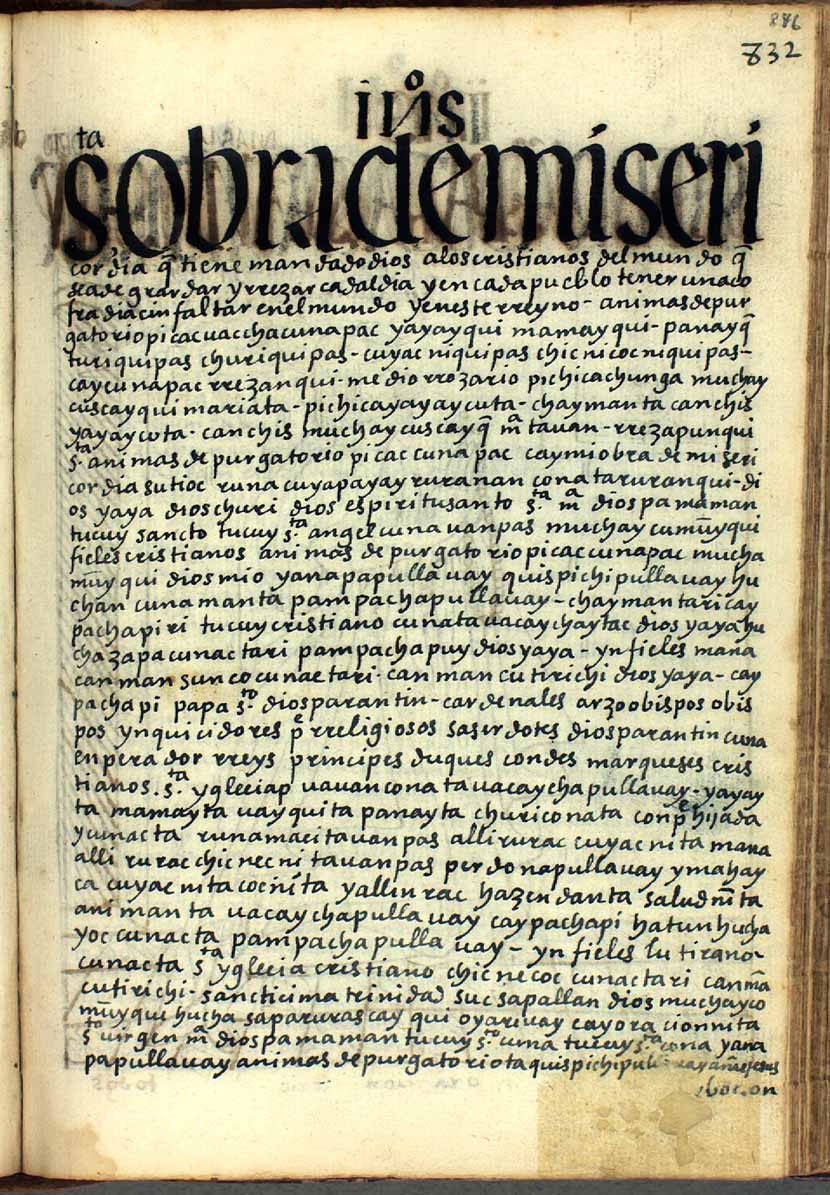 846
832
ihūs
sta
sobra de miseri
cordia q̃ tiene mandado dios a los cristianos del mundo q̃
sea de guardar y rrezar cadaldia y en cada pueblo tener una co
fradia cin faltar en el mundo y en este rreyno - animas de pur
gatoriopi cac uacchacunapac yayayqui mamayqui - panayq̃
turiquipas churiquipas - cuyacniquipas chicnicocniquipas -
caycunapac rrezanqui - medio rrozario pichica chunga muchay
cuscayqui mariata - pichica yayaycuta - chaymanta canchis
yayaycota - canchis muchaycuscayq̃ ma tauan - rrezapunqui
sta animas de purgatoriopi caccunapac caymi obra de miseri
cordia sutioc runa cuyapayay ruranancona ta ruranqui - di
os yaya dios churi dios espiritu santo sta ma diospa maman
tucuy sancto tucuy sta angelcunauanpas muchaycumũyqui
fieles cristianos animas de purgatoriopi caccunapac mucha
mũyqui dios mio yanapapullauay quispichipullauay hu
chancunamanta pampachapullauay - chaymantari cay
pachapiri tucuy cristianocunata uacaychaytac dios yaya hu
chazapacunactari pampachapuy dios yaya - ynfieles mana
canman suncocunactari - canman cutirichi dios yaya - cay
pachapi papa sto diosparantin - cardenales arzoobispos obis
pos ynquicidores pe rreligiosos saserdotes diosparantincuna
enperador rreys principes duques condes marqueses cris
tianos . sta ygleciap uauanconata uacaychapullauay - yayay
ta mamayta uayquita panayta churiconata conpe hijada
ycunacta runa macitauanpas alli rurac cuyacnita mana
alli rurac chicnecnitauanpas perdonapullauay ymahay
ca cuyacnita cocñita yallinrac hazendanta saludnĩta
animanta uacaychapullauay caypachapi hatun hucha
yoccunacta pampachapullauay - ynfieles lutirano
cunacta sta yglecia cristiano chicnecoccunactari canmã
cutirichi - sancticima trinidad suc sapallan dios muchayco
mũyqui hucha sapa rurascayqui oyariuay cay oracionnita
sto uirgen ma diospa maman tucuy sto cuna tucuy sta cona yana
papullauay animas de purgatoriota quispichipu